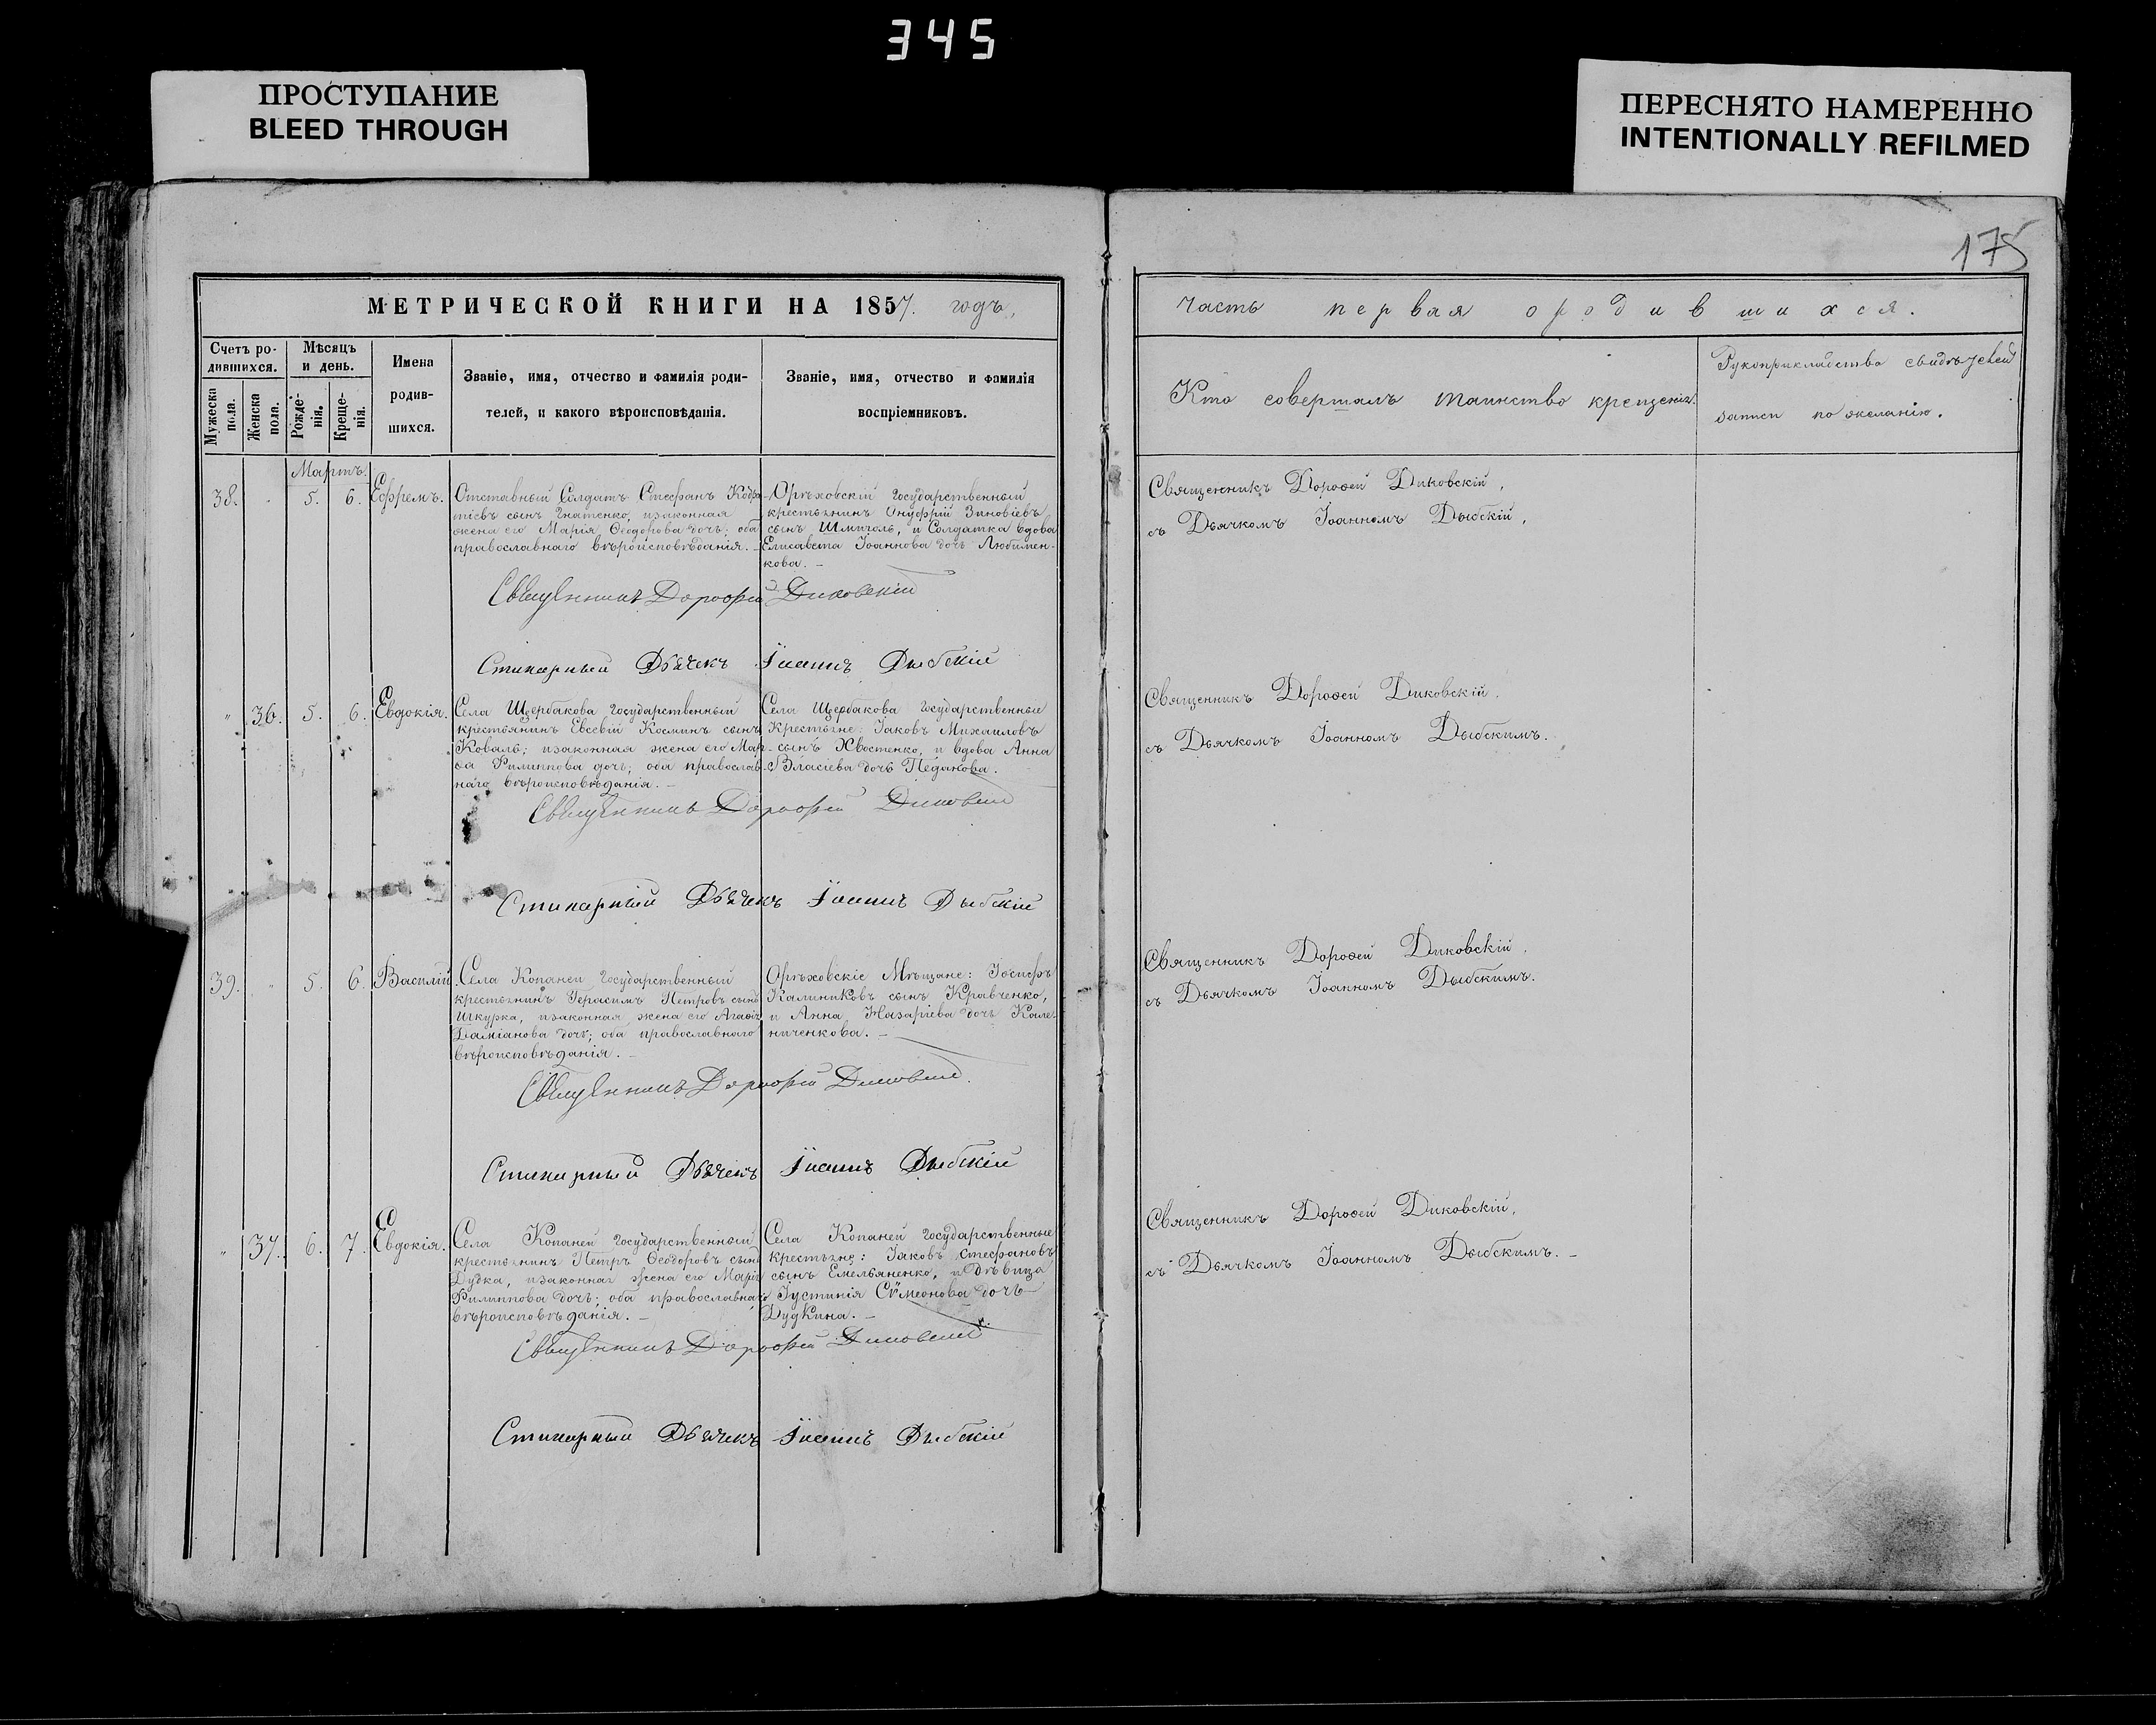 345
ПРОСТУПАНИЕ
BLEED THROUGH
ПЕРЕСНЯТО НАМЕРЕННО
INTENTIONALLY REFILMED
175
МЕТРИЧЕСКОЙ КНИГИ НА 1857. годъ,
Счетъ ро-
дившихся.
Мужеска
пола.
Женска
пола.
Мѣсяцъ
и день.
Рожде-
нія.
Креще-
нія.
Имена
родив-
шихся.
Званіе, имя, отчество и фамилія роди-
телей, и какого вѣроисповѣданія.
Званіе, имя, отчество и фамилія
воспріемниковъ.
Мартъ.
38. " 5. 6. Ефремъ.
Отставный Солдатъ Стефанъ Кодра-
тіевъ сынъ Гнатенко, изаконная
жена его Марія Ѳеодорова дочь; оба
православнаго вѣроисповѣданія. –
Орѣховскій государственный
крестьянинъ Онуфрій Зиновіевъ
сынъ Шмиголь, и Солдатка вдова
Елисавета Іоаннова дочь Любимен-
кова. –
Священникъ Дорофей Диковскій
Стихарный Дьячекъ Іоаннъ Дыбскій
" 36. 5. 6. Евдокія.
Села Щербакова государственный
крестьянинъ Евсевій Косминъ сынъ
Коваль; изаконная жена его Мар-
ѳа Филиппова дочь; оба православ-
наго вѣроисповѣданія. –
Села Щербакова государственные
Крестьяне: Іаковъ Михаиловъ
сынъ Хвостенко, и вдова Анна
Власіева дочь Педакова.
Священникъ Дорофей Диковскій
Стихарный Дьячекъ Іоаннъ Дыбскій
39. " 5. 6. Василій.
Села Копаней государственный
крестьянинъ Герасимъ Петровъ сынъ
Шкурка, изаконная жена его Агаѳія
Даміанова дочь; оба православнаго
вѣроисповѣданія. –
Орѣховскіе Мѣщане: Іосифъ
Калиниковъ сынъ Кравченко,
и Анна Назаріева дочь Кале-
ниченкова. –
Священникъ Дорофей Диковскій.
Стихарный Дьячекъ Іоаннъ Дыбскій
" 37. 6. 7. Евдокія.
Села Копаней государственный
крестьянинъ Петръ Ѳеодоровъ сынъ
Дудка, изаконная жена его Марія
Филиппова дочь; оба православнаго
вѣроисповѣданія. –
Села Копаней государственные
крестьяне: Іаковъ Стефановъ
сынъ Емельяненко, и дѣвица
Іустинія Сѵмеонова дочь
Дудкина. –
Священникъ Дорофей Диковскій
Стихарный Дьячекъ Іоаннъ Дыбскій
Часть первая о родившихся.
Кто совершалъ таинство крещенія.
Рукоприкладство свидѣтелей
записи по желанію.
Священникъ Дороѳей Диковскій,
съ Дьячкомъ Іоанномъ Дыбскій,
Священникъ Дороѳей Диковскій.
съ Дьячкомъ Іоанномъ Дыбскимъ.
Священникъ Дороѳей Диковскій.
съ Дьячкомъ Іоанномъ Дыбскимъ.
Священникъ Дороѳей Диковскій,
съ Дьячкомъ Іоанномъ Дыбскимъ. –